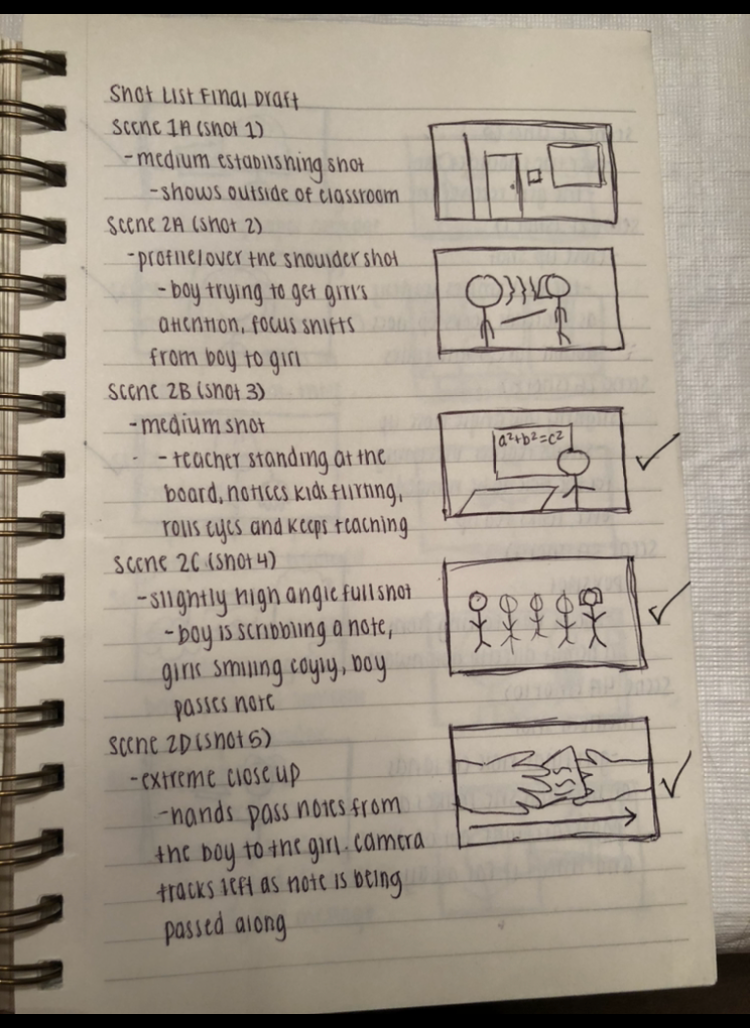 Shot List Final Draft
Scene 1A (shot 1)
-medium establishing shot
-shows outside of classroom
Scene 2A (shot 2)
-profile/over the shoulder shot
-boy trying to get girl's
attention, focus shifts
from boy to girl
Scene 2B (shot 3)
-medium shot
-teacher standing at the
board, notices kids flirting,
rolls eyes and keeps teaching
a²+b²=c²
Scene 2C (shot 4)
-slightly high angle full shot
-boy is scribbling a note,
girls smiling coyly, boy
passes note
Scene 2D (shot 5)
-extreme close up
-hands pass notes from
the boy to the girl. camera
tracks left as note is being
passed along